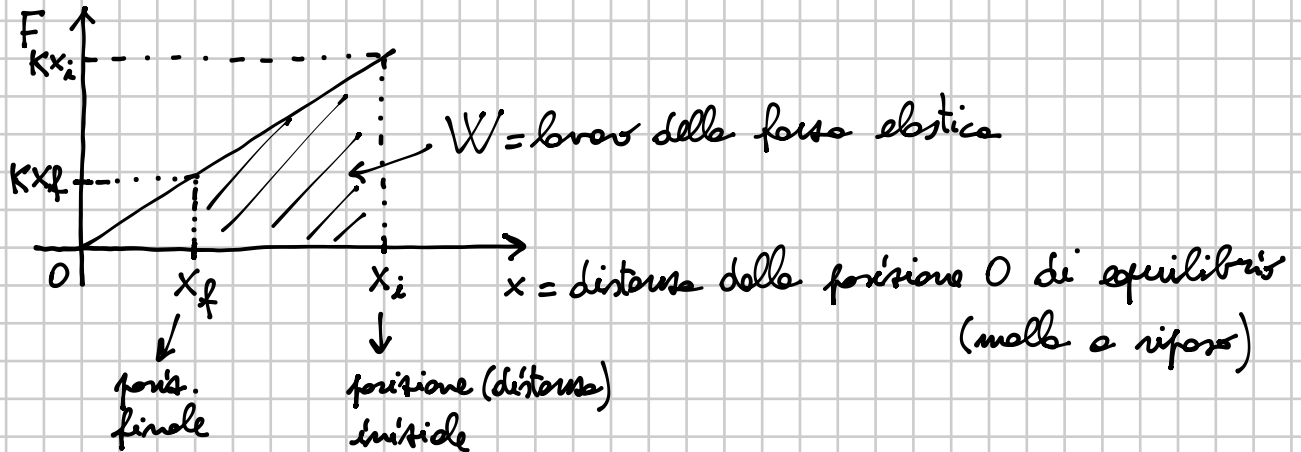 F
Kxᵢ
W = lavoro della forza elastica
Kxf
O
xf
xᵢ
x = distanza dalla posizione O di equilibrio
(molla a riposo)
posiz.
finale
posizione (distanza)
iniziale